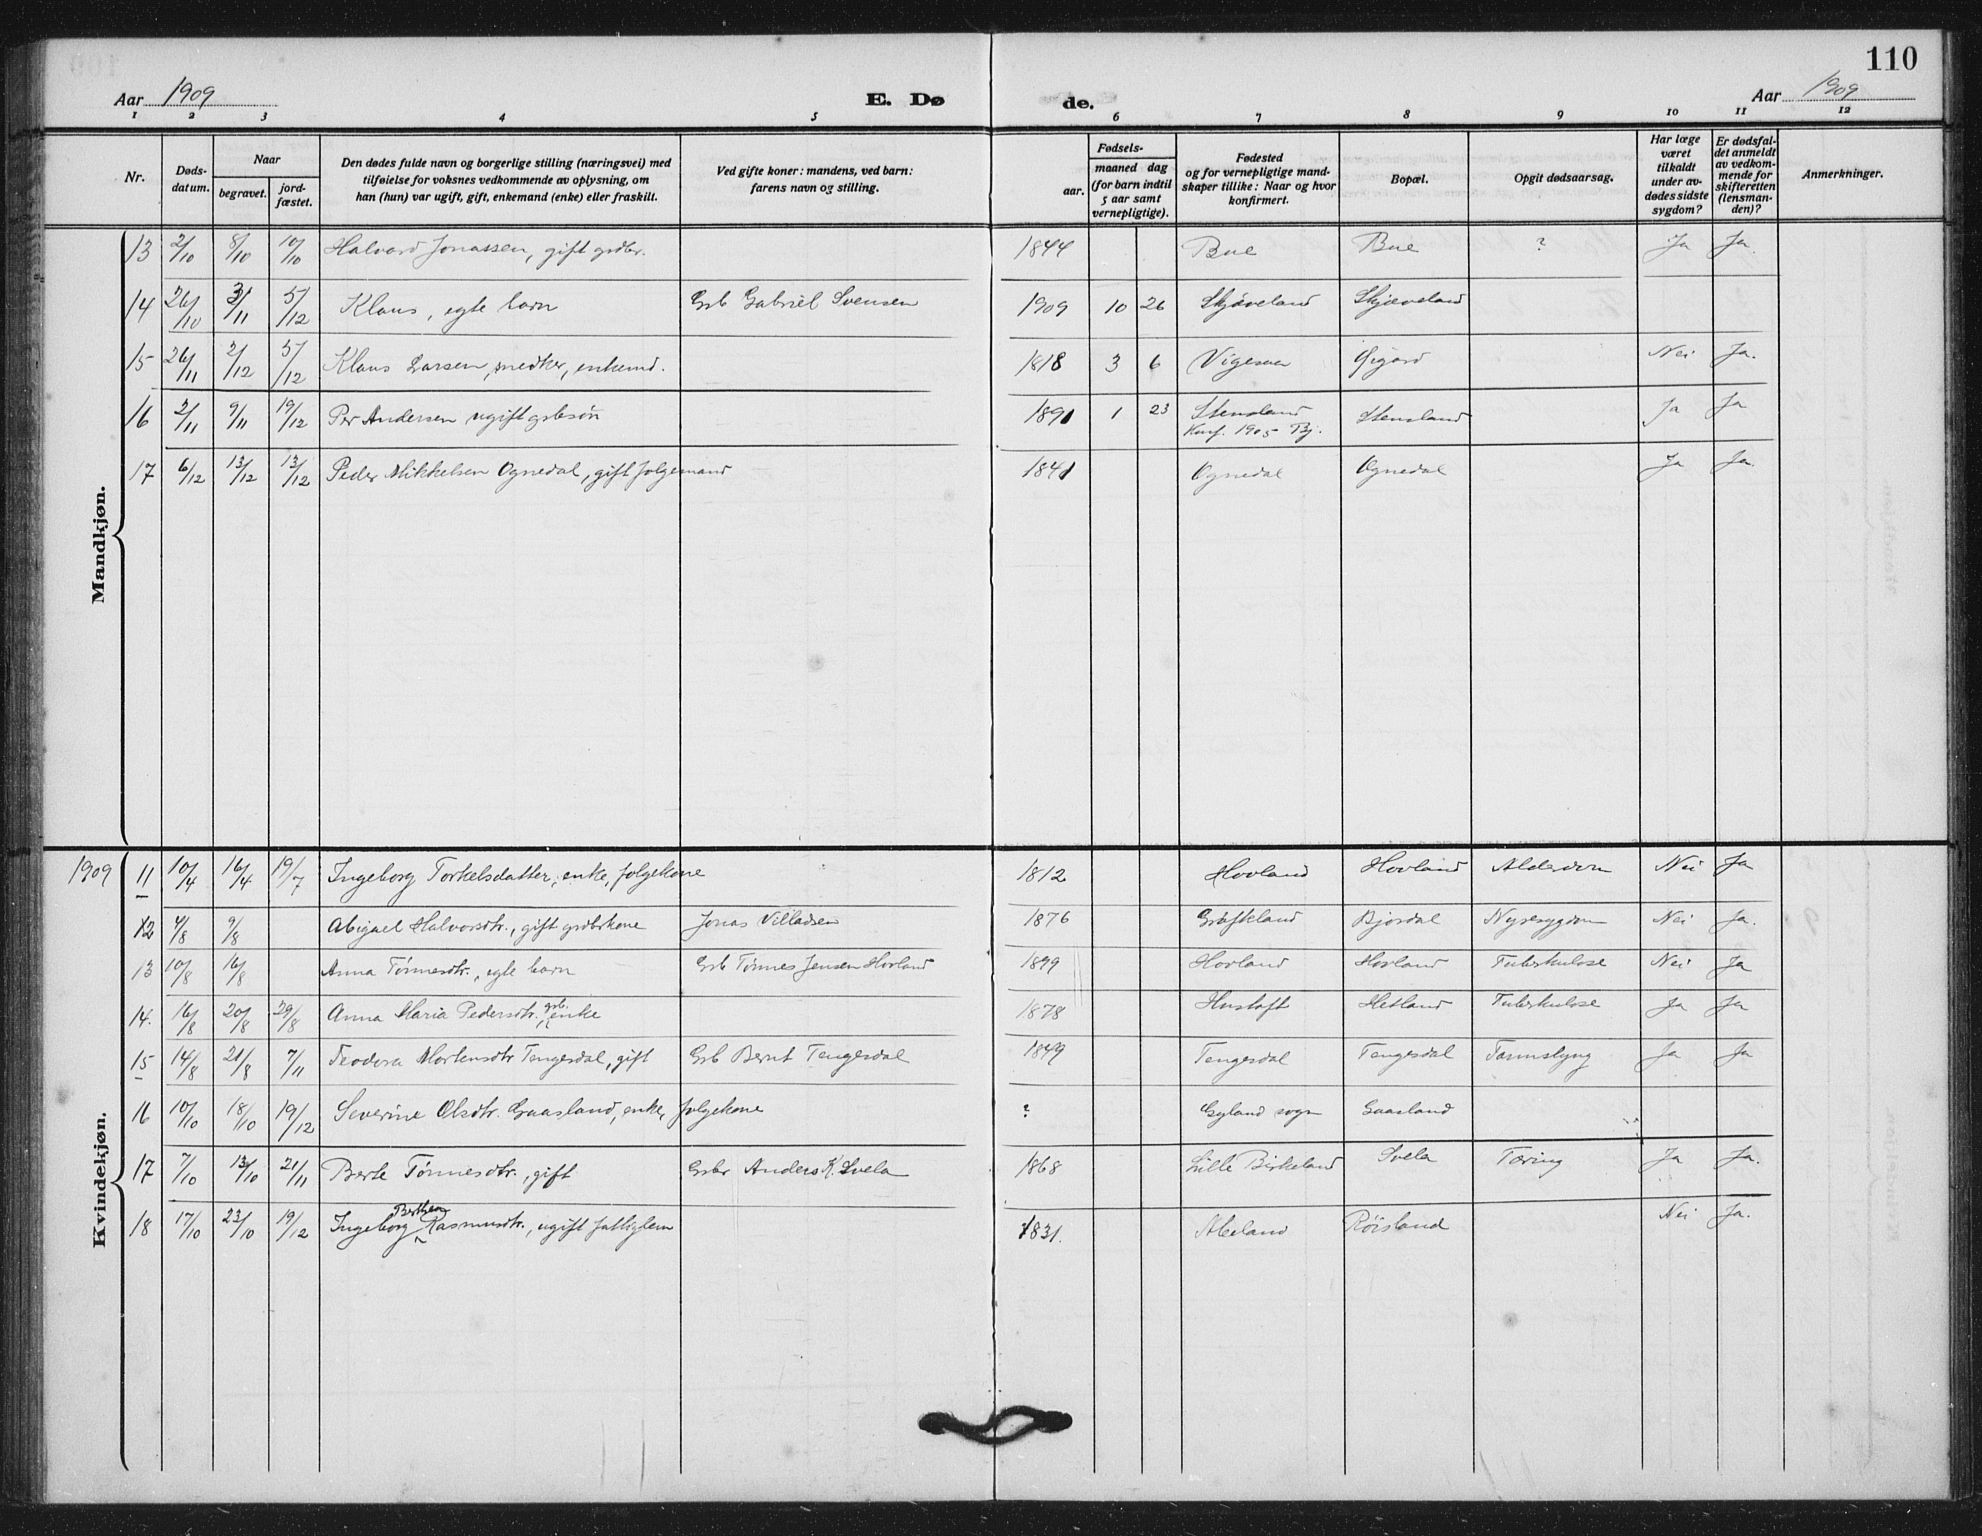 110
Aar 1909 E. Dø de. Aar 1909
1 2 3 4 5 6 7 8 9 10 11 12
Nr. Døds-datum. Naar begravet. jord-fæstet. Den dødes fulde navn og borgerlige stilling (næringsvei) med tilføielse for voksnes vedkommende av oplysning, om han (hun) var ugift, gift, enkemand (enke) eller fraskilt. Ved gifte koner: mandens, ved barn: farens navn og stilling. Fødsels- aar. maaned dag (for barn indtil 5 aar samt vernepligtige). Fødested og for vernepligtige mandskaper tillike: Naar og hvor konfirmert. Bopæl. Opgit dødsaarsag. Har læge været tilkaldt under avdødes sidste sygdom? Er dødsfaldet anmeldt av vedkommende for skifteretten (lensmanden)? Anmerkninger.
Mandkjøn.
13 2/10 8/10 10/10 Halvard Jonassen, gift grdbr. 1844 Bue Bue ? Ja Ja.
14 26/10 3/11 5/12 Klaus, egte barn Grb Gabriel Svensen 1909 10 26 Skjæveland Skjæveland
15 26/11 2/12 5/12 Klaus Larsen, snedker, enkemd. 1818 3 6 Vigesaa Øigard Nei Ja.
16 2/11 9/11 19/12 Per Andersen ugift grbesøn 1891 1 23 Stensland Stensland Ja Ja
Konf. 1905 Bj.
17 6/12 13/12 13/12 Peder Mikkelsen Ognedal, gift folgemand 1841 Ognedal Ognedal Ja Ja.
Kvindekjøn.
1909 11 10/4 16/4 19/7 Ingeborg Torkelsdatter, enke, folgekone 1812 Hovland Hovland Alderdom Nei Ja
12 4/8 9/8 Abigael Halvorsdtr., gift grdbrkone Jonas Villadsen 1876 Bjordal Nyresygdom Nei Ja.
13 10/8 16/8 Anna Tønnesdtr., egte barn Grb Tønnes Jensen Hovland 1899 Hovland Hovland Tuberkulose Nei Ja
14. 16/8 20/8 29/8 Anna Maria Pedersdtr. grb. enke 1878 Hustoft Hetland Tuberkulose Ja Ja
15 14/8 21/8 7/11 Teodora Mortensdtr Tengesdal, gift Grb Bernt Tengesdal 1849 Tengesdal Tengesdal Tarmslyng Ja Ja
16 10/10 18/10 19/12 Severine Olsdtr. Gaasland, enke, folgekone ? Gyland sogn Gaasland
17 7/10 13/10 21/11 Berte Tønnesdtr., gift Grbr Anders K. Svela 1868 Lille Birkeland Svela Tæring Ja Ja.
18 17/10 23/10 19/12 Ingeborg Berthea Rasmusdtr., ugift fattiglem 1831. Røisland Nei Ja.